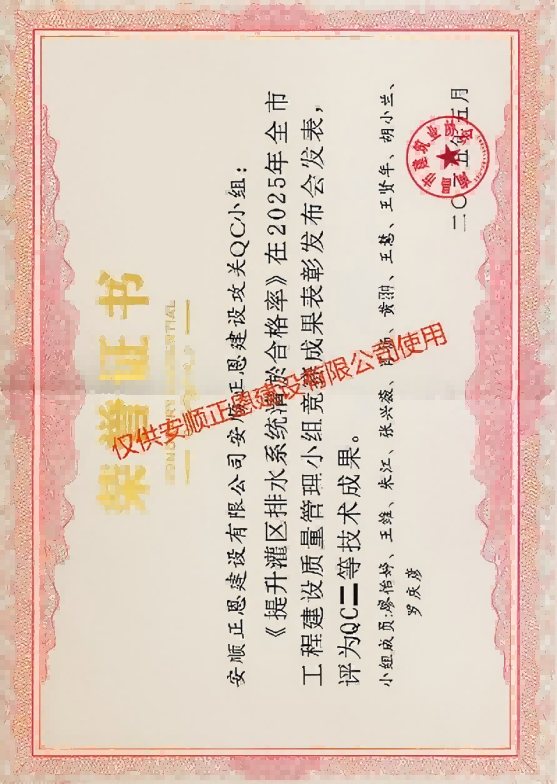 荣誉证书
安顺正恩建设有限公司安顺正恩建设攻关QC小组：
《提升灌区排水系统清淤合格率》在2025年全市
工程建设质量管理小组竞赛成果表彰发布会发表，
评为QC二等技术成果。
小组成员:廖怡婷、王维、朱江、张兴薇、黄翀、王慧、王贤年、胡小兰、
罗庆彦
二〇二五年五月
仅供安顺正恩建设有限公司使用